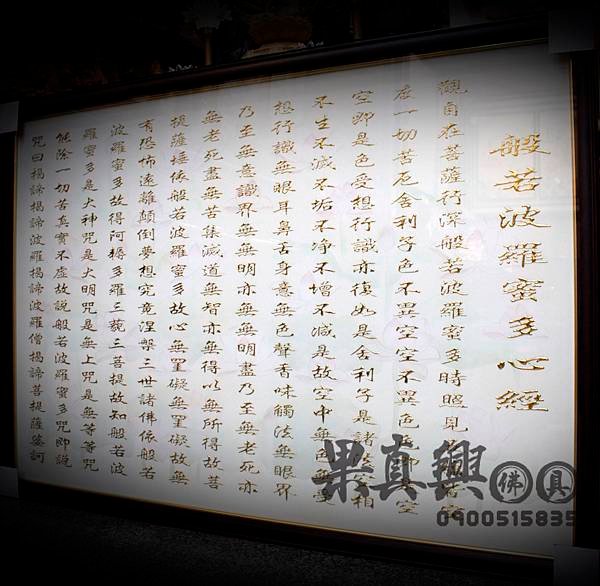 般若波羅蜜多心經
觀自在菩薩行深般若波羅蜜多時照見
度一切苦厄舍利子色不異空空不異色色即是空
空即是色受想行識亦復如是舍利子是諸法空相
不生不滅不垢不淨不增不減是故空中無色無受
想行識無眼耳鼻舌身意無色聲香味觸法無眼界
乃至無意識界無無明亦無無明盡乃至無老死亦
無老死盡無苦集滅道無智亦無得以無所得故菩
提薩埵依般若波羅蜜多故心無罣礙無罣礙故無
有恐怖遠離顛倒夢想究竟涅槃三世諸佛依般若
波羅蜜多故得阿耨多羅三藐三菩提故知般若波
羅蜜多是大神咒是大明咒是無上咒是無等等咒
能除一切苦真實不虛故說般若波羅蜜多咒即說
咒曰揭諦揭諦波羅揭諦波羅僧揭諦菩提薩婆訶
果真興佛具
0900515835